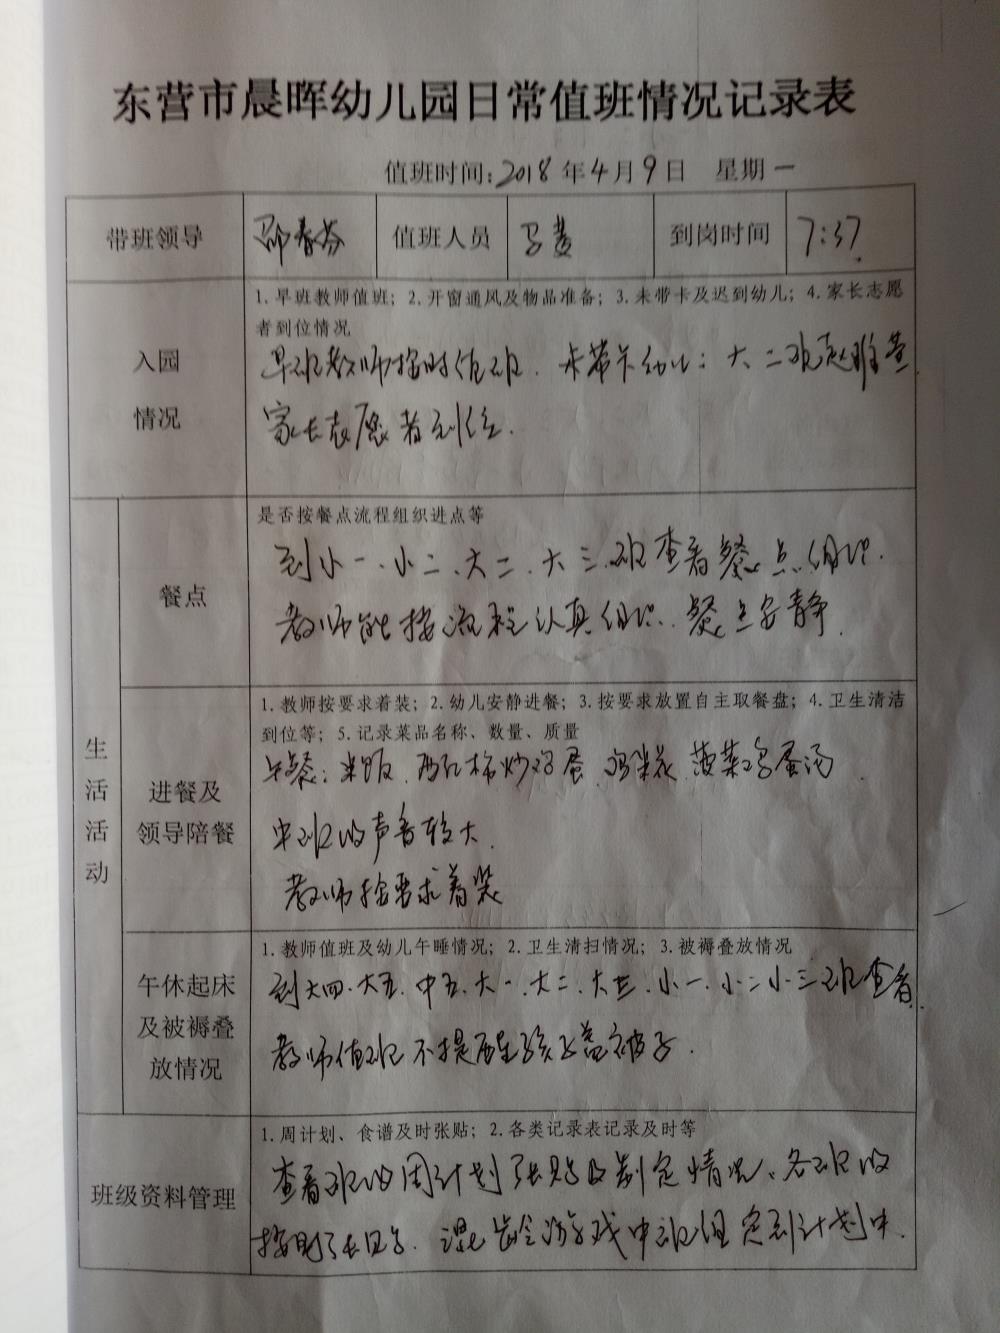 东营市晨晖幼儿园日常值班情况记录表
值班时间:2018年4月9日 星期一
带班领导 邱春芬 值班人员 到岗时间 7:37
入园
情况
1.早班教师值班;2.开窗通风及物品准备;3.未带卡及迟到幼儿;4.家长志愿
者到位情况
早班教师按时值班.未带卡幼儿:大二班
家长志愿者到位.
生活活动
餐点
是否按餐点流程组织进点等
到小一、小二、大二、大三班查看餐点组织.
教师能按流程认真组织.餐点安静.
进餐及
领导陪餐
1.教师按要求着装;2.幼儿安静进餐;3.按要求放置自主取餐盘;4.卫生清洁
到位等;5.记录菜品名称、数量、质量
午餐:米饭.西红柿炒鸡蛋.鸡米花.菠菜鸡蛋汤
中班的声音较大.
教师按要求着装
午休起床
及被褥叠
放情况
1.教师值班及幼儿午睡情况;2.卫生清扫情况;3.被褥叠放情况
到大四.大五.中五.大一.大二.大三.小一.小二小三班查看.
教师值班不提醒孩子盖被子.
班级资料管理
1.周计划、食谱及时张贴;2.各类记录表记录及时等
查看班的周计划张贴及制定情况、各班的
混龄游戏中班组定到计划中.